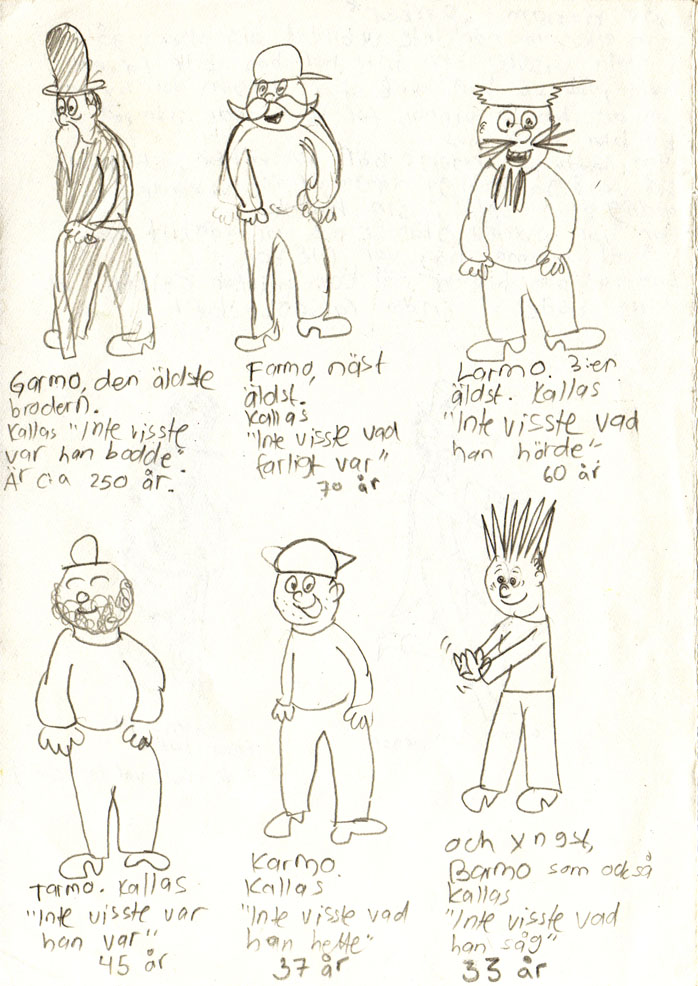 Garmo, den äldste
brodern.
Kallas "Inte visste
var han bodde"
Är c:a 250 år.
Farmo, näst
äldst.
Kallas
"Inte visste vad
farligt var"
70 år
Larmo. 3:en
äldst. Kallas
"Inte visste vad
han hörde"
60 år
Tarmo. Kallas
"Inte visste var
han var"
45 år
Karmo.
Kallas
"Inte visste vad
han hette"
37 år
och yngst,
Barmo som också
kallas
"Inte visste vad
han såg"
33 år